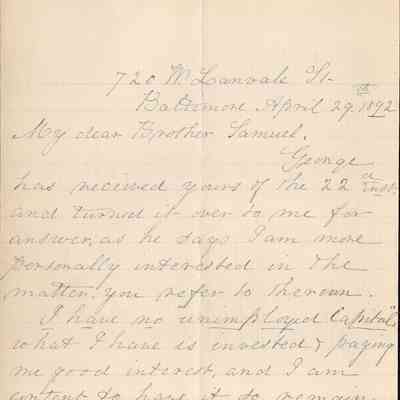 720 W Lanvale St.
Baltimore April 29th 1892
My dear Brother Samuel.
George
has received yours of the 22d inst.
and turned it over to me for
answer, as he says I am more
personally interested in the
matter, you refer to therein.
I have no unemployed Capital"
what I have is invested & paying
me good interest, and I am
content to have it so remain